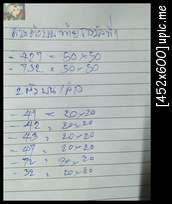 - 427 = 50×50
- 732 = 50×50
2 ตัวบน/ล่าง
- 41 = 20×20
- 42 = 20×20
- 43 = 20×20
- 47 = 20×20
- 72 = 20×20
- 32 = 20×20
[452x600] upic.me